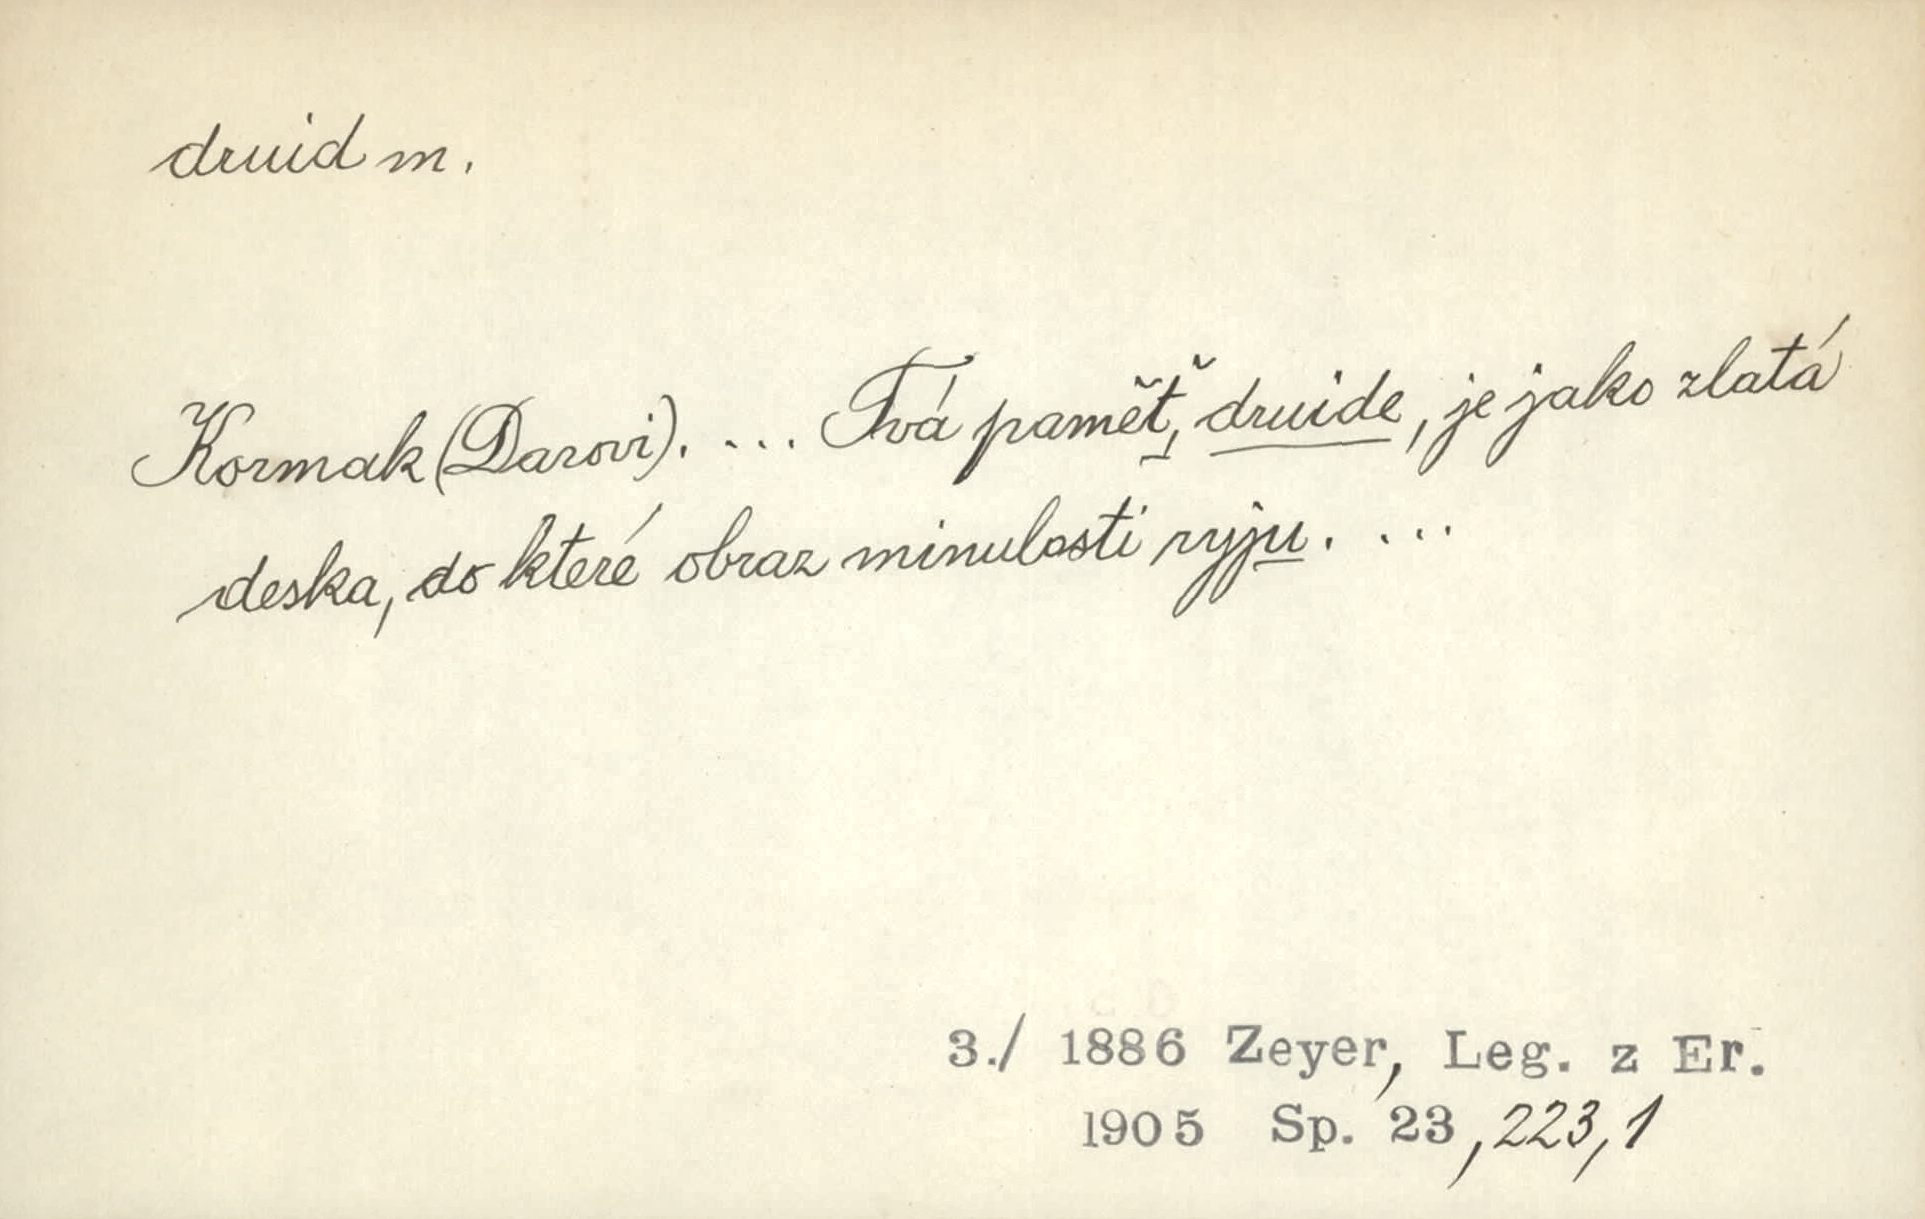 druid m.
Kormak (Darovi). ... Tvá paměť, druide, je jako zlatá
deska, do které obraz minulosti ryju. ...
3./ 1886 Zeyer, Leg. z Er.
1905 Sp. 23, 223, 1